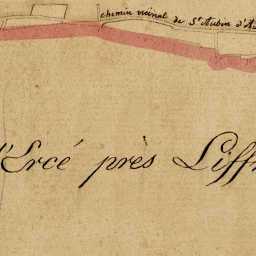 chemin vicinal de St Aubin d'Au
d'Ercé près Liffr